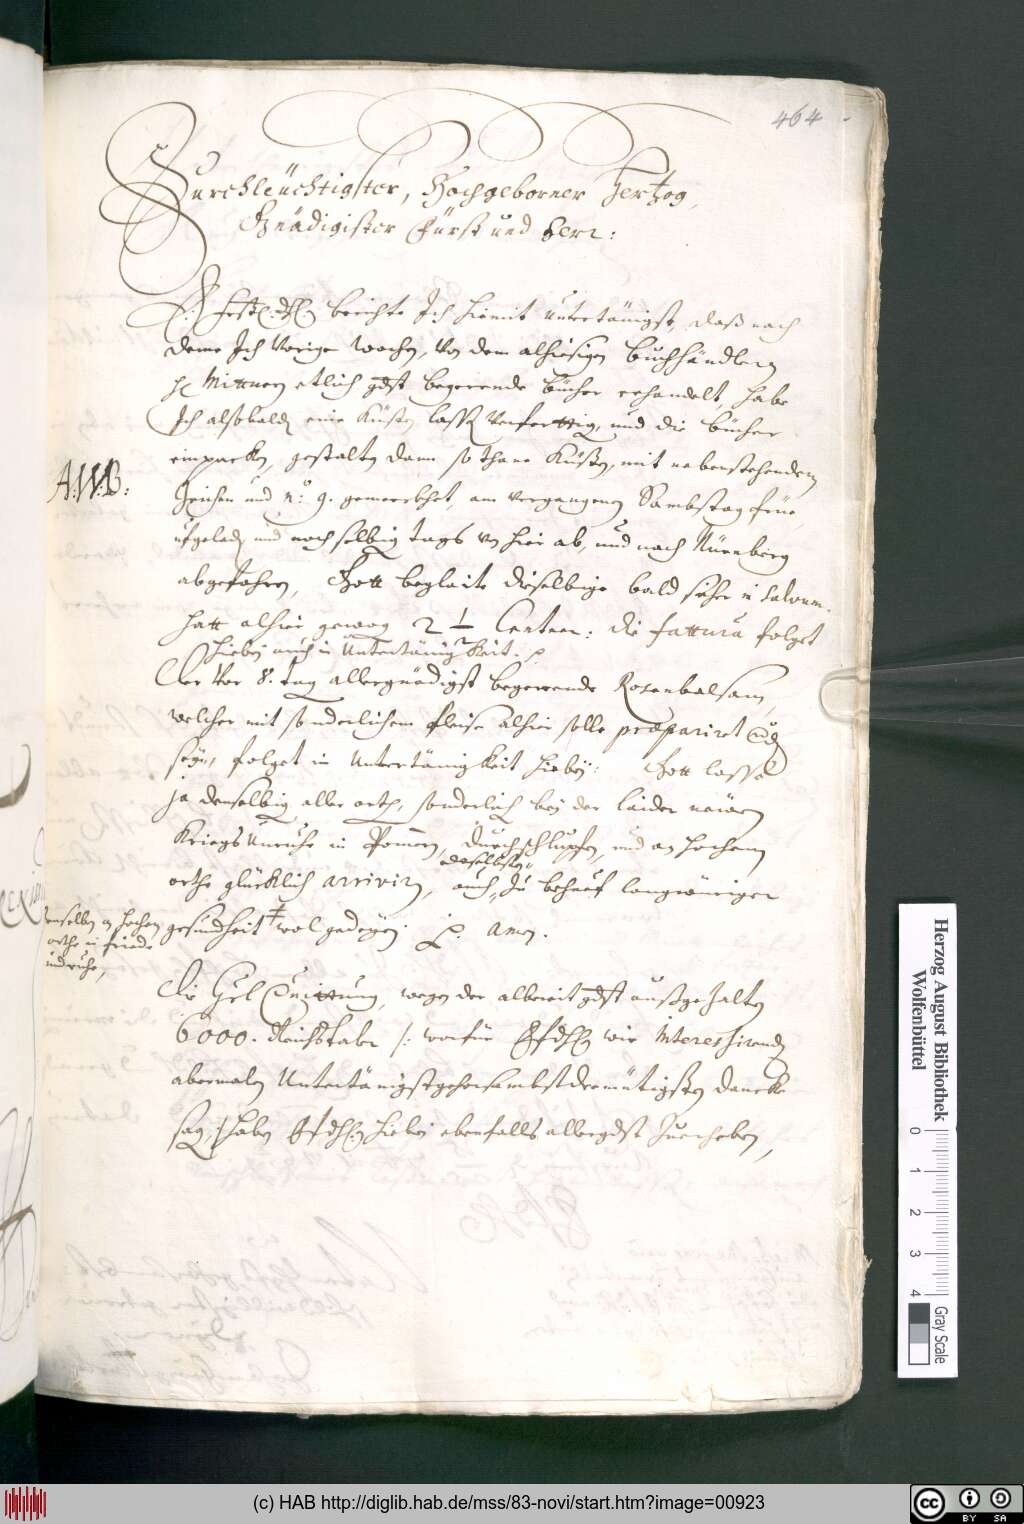 464
Durchleüchtigister, Hochgeborner Hertzog,
Gnädigister Fürst und Herr:
berichte Ich hiemit untertänigst, daß nach
deme Ich vorige wochen, von dem alhiesigen Buchhändlern
H. Mittnern etlich gdst begerende Bücher erhandelt, habe
Ich alsobalden eine Küsten lassen verferttig, und die Bücher
einpacken, gestalten dann sothane Küsten, mit nebenstehendem
A.W.B:
Zeichen und No: 9. gemerckhet, am vergangenen Sambstag früe
ufgeladen und noch selbig tags von hier ab, und nach Nürnberg
abgefahren, Gott begleite dieselbige bald sicher in Salvum.
Hatt alhier gewogen 2 1/2 Centner: die fattura folget
hiebej auch in Untertänigkeit.
Der vor 8. tag allergnädigst begerende Rosenbalsam,
welcher mit sonderlichem fleise alhier solle præpariret worden
seyn, folget in Untertänigkeit hiebej: Gott lasse
ja denselbig aller orth, sonderlich bej der laider newen
Kriegs Unruhe in Pommern, durchschlupfen, und an hochem
orthe glücklich arriviren, auch, zu behueff langwüriger
daselbsten
gesundheit ‡ wol gedeyen. Amen.
denselben an hochem
orthe in friede
und ruhe,
Die Quittung, wegen der albereit gdst außgezalten
6000. Reichstaler /: worfür wir Interessirende
abermalen Untertänigstgehorsambstdemütigsten danckh
sagen :/ haben hiebej ebenfalls allergdst zuerheben,
Herzog August Bibliothek
Wolfenbüttel
0 1 2 3 4
Gray Scale
(c) HAB http://diglib.hab.de/mss/83-novi/start.htm?image=00923
cc BY SA